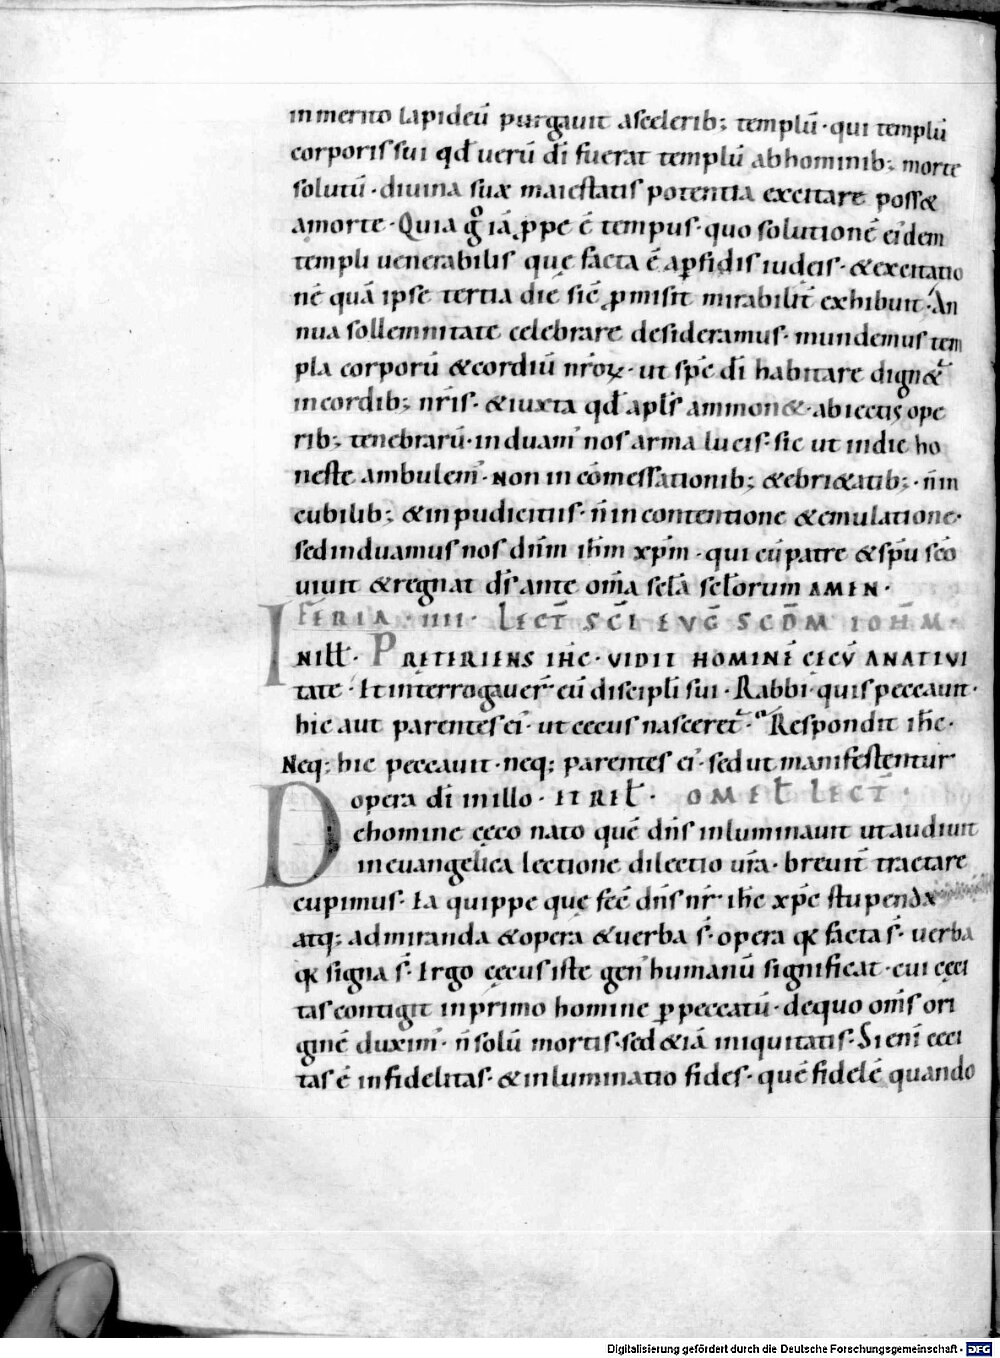 inmerito lapideū purgauit asceleribꝫ templū · qui templū
corporis sui qđ uerū dī fuerat templū abhominibꝫ morte
solutū · diuina suæ maiestatis potentia excitare poss&
amorte · Quia gͦ iā ꝓpe ē tempus · quo solutionē eiꝰdem
templi uenerabilis quę facta ē aꝑfidis iudęis · &excitatio
nē quā ipse tertia die sic ꝓmisit mirabilit̄ exhibuit · An
nua sollemnitate celebrare desideramus · mundemus tem
pla corporū &cordiū nr̄oꝝ · ut sp̄c dī habitare dign&ꝰ
incordibꝫ nr̄is · &iuxta qđ apl̄s ammon& · abiectis ope
ribꝫ tenebrarū · induamꝰ nos arma lucis · sic ut indie ho
neste ambulemꝰ · Non in cōmessationibꝫ &ebri&atibꝫ · n̄ in
cubilibꝫ &inpudicitiis · n̄ in contentione &emulatione ·
sed induamus nos dn̄m ih̄m xp̄m · qui cū patre &sp̄u sc̄o
uiuit &regnat dS̄ ante om̄a sc̄la sc̄lorum AMEN ·
FERIA · IIII · LECT̄ SC̄I EVḠ SCD̄M IOH̄M ·
INILŁ · PRETERIENS IHC̄ · VIDIT HOMINĒ CECV̄ ANATIVI
tate · Et interrogauer̄ eū discipli sui · Rabbi · quis peccauit ·
hic aut parentes eiꝰ · ut cecus nasceretꝰ · Respondit ih̄c ·
Neqꝫ hic peccauit · neqꝫ parentes eiꝰ · sed ut manifestentur
opera dī in illo · ET REŁ · OMEŁ LECT̄ ·
Dehomine cęco nato quē dn̄s inluminauit ut audiuit
in euangelica lectione dilectio ur̄a · breuit̄ tractare
cupimus · Ea quippe que fec̄ dn̄s nr̄ ih̄c xp̄c stupenda
atqꝫ admiranda &opera &uerba s̄ · opera qꝛ facta s̄ · uerba
qꝛ signa s̄ · Ergo cęcus iste genꝰ humanū significat · cui cęci
tas contigit in primo homine ꝑ peccatū · dequo om̄s ori
ginē duximꝰ · n̄ solū mortis · sed &iā iniquitatis · Si eni ̄ ceci
tas ē infidelitas · &inluminatio fides · quē fidelē quando
Digitalisierung gefördert durch die Deutsche Forschungsgemeinschaft · DFG